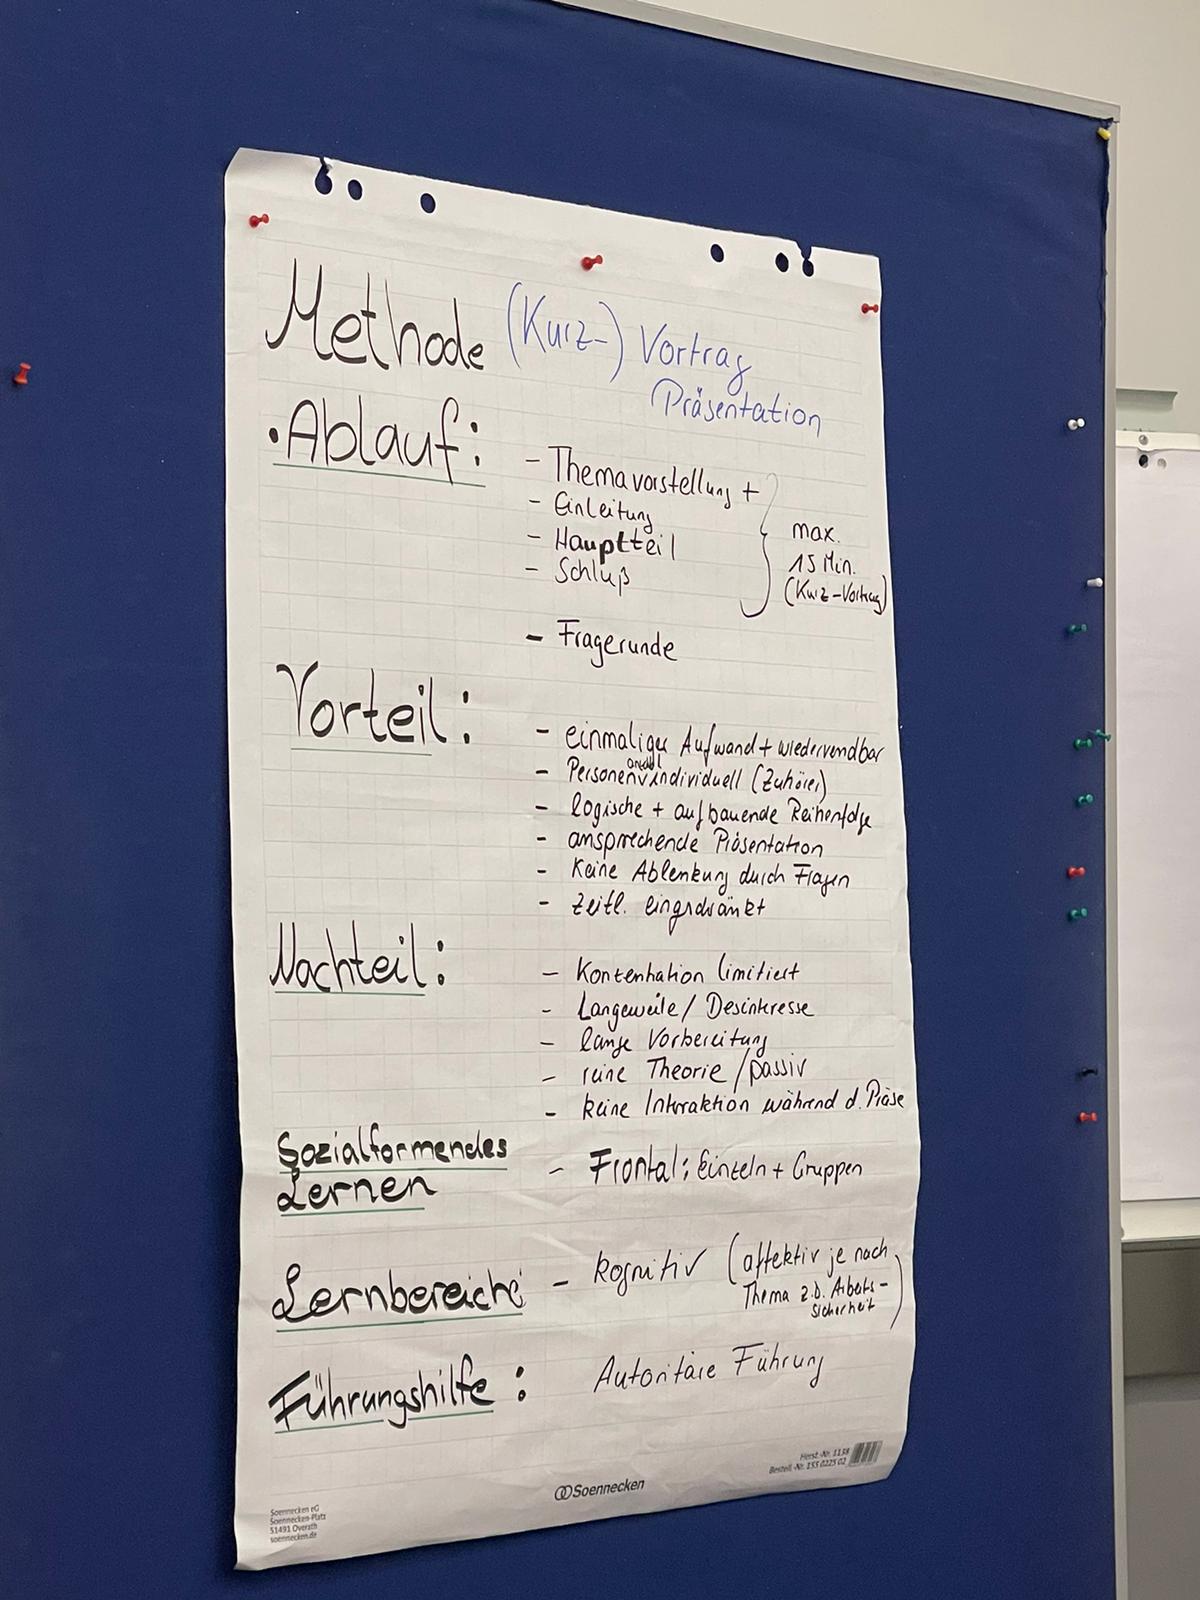 Methode (Kurz-) Vortrag
Präsentation
• Ablauf:
- Themavorstellung +
- Einleitung
- Hauptteil
- Schluß
max.
15 Min.
(Kurz-Vortrag)
- Fragerunde
Vorteil:
- einmaliger Aufwand + wiederverwendbar
- Personenanzahl individuell (Zuhörer)
- logische + aufbauende Reihenfolge
- ansprechende Präsentation
- Keine Ablenkung durch Fragen
- zeitl. eingeschränkt
Nachteil:
- Konzentration limitiert
- Langeweile / Desinteresse
- lange Vorbereitung
- reine Theorie / passiv
- keine Interaktion während d. Präse
Sozialformendes
Lernen
- Frontal; Einzeln + Gruppen
Lernbereiche - kognitiv (affektiv je nach
Thema z.b. Arbeits-
sicherheit)
Führungshilfe: Autoritäre Führung
Herst.-Nr. 1138
Bestell.-Nr. 155 0225 02
Soennecken
Soennecken eG
Soennecken-Platz
51491 Overath
soennecken.de